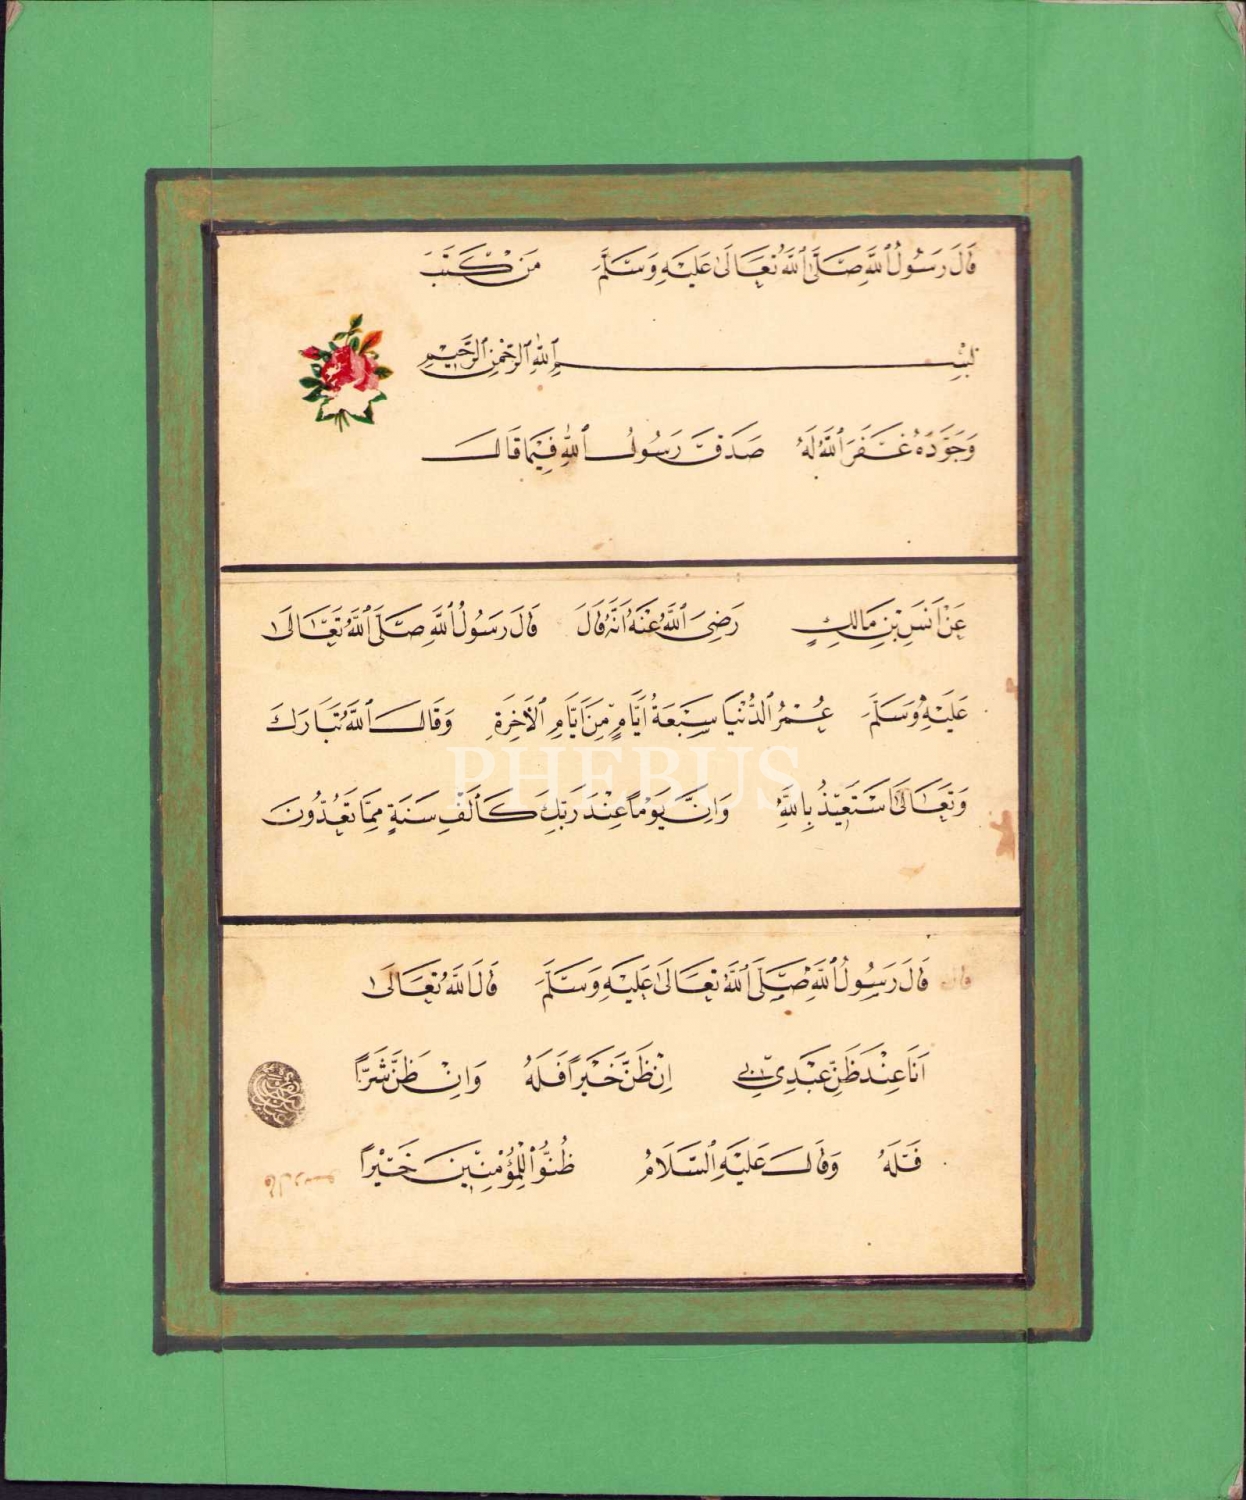 قَالَ رَسُولُ ٱللَّهِ صَلَّى ٱللَّهُ تَعَالَى عَلَيْهِ وَسَلَّمَ مَنْ كَتَبَ
بِسْمِ ٱللَّهِ ٱلرَّحْمٰنِ ٱلرَّحِيمِ
وَجَوَّدَهُ غَفَرَ ٱللَّهُ لَهُ صَدَقَ رَسُولُ ٱللَّهِ فِيمَا قَالَ
عَنْ اَنَسِ بْنِ مَالِكٍ رَضِىَ ٱللَّهُ عَنْهُ اَنَّهُ قَالَ قَالَ رَسُولُ ٱللَّهِ صَلَّى ٱللَّهُ تَعَالَى
عَلَيْهِ وَسَلَّمَ عُمْرُ ٱلدُّنْيَا سَبْعَةُ اَيَّامٍ مِنْ اَيَّامِ ٱلْاٰخِرَةِ وَقَالَ ٱللَّهُ تَبَارَكَ
وَتَعَالَى اَسْتَعِيذُ بِاللَّهِ وَاِنَّ يَوْمًا عِنْدَ رَبِّكَ كَاَلْفِ سَنَةٍ مِمَّا تَعُدُّونَ
قَالَ رَسُولُ ٱللَّهِ صَلَّى ٱللَّهُ تَعَالَى عَلَيْهِ وَسَلَّمَ قَالَ ٱللَّهُ تَعَالَى
اَنَا عِنْدَ ظَنِّ عَبْدِى بِى اِنْ ظَنَّ خَيْرًا فَلَهُ وَاِنْ ظَنَّ شَرًّا
فَلَهُ وَقَالَ عَلَيْهِ ٱلسَّلَامُ ظُنُّوا لِلْمُؤْمِنِينَ خَيْرًا
PHEBUS